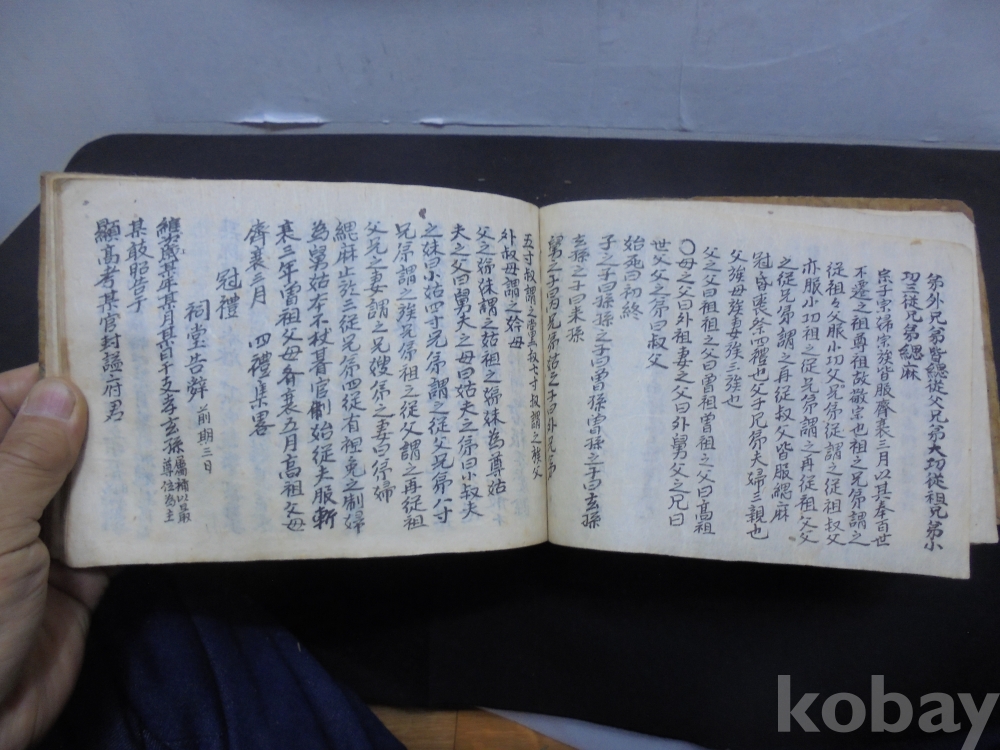 弟外兄弟皆緦從父兄弟大功從祖兄弟小
功三從兄弟緦麻
宗子宗婦宗族皆服齊衰三月以其奉百世
不遷之祖尊祖故敬宗也祖之兄弟謂之
從祖々父服小功父兄弟從謂之從祖叔父
亦服小功祖之從兄弟謂之再從祖父父
之從兄弟謂之再從叔父皆服緦麻
冠昏喪祭四禮也父子兄弟夫婦三親也
父族母族妻族三族也
父之父曰祖祖之父曰曾祖曾祖之父曰高祖
○母之父曰外祖妻之父曰外舅父之兄曰
世父父之弟曰叔父
始死曰初終
子之子曰孫孫之子曰曾孫曾孫之子曰玄孫
玄孫之子曰來孫
舅之子曰內兄弟姑之子曰外兄弟
五寸叔謂之堂叔七寸叔謂之族父
外叔母謂之妗母
父之姊妹謂之姑祖之姊妹為尊姑
夫之父曰舅夫之母曰姑夫之弟曰小叔夫
之妹曰小姑四寸兄弟謂之從父兄弟八寸
兄弟謂之族兄弟祖之從父謂之再從祖
父兄之妻謂之兄嫂弟之妻曰弟婦
緦麻止於三從兄弟四從有袒免之制婦
為舅姑本不杖朞官制始從夫服斬
衰三年曾祖父母齊衰五月高祖父母
齊衰三月 四禮集畧
冠禮
祠堂告辭 前期三日
維歲某年某月某日干支孝玄孫屬稱以最尊位為主
某敢昭告于
顯高考某官封諡府君
kobay